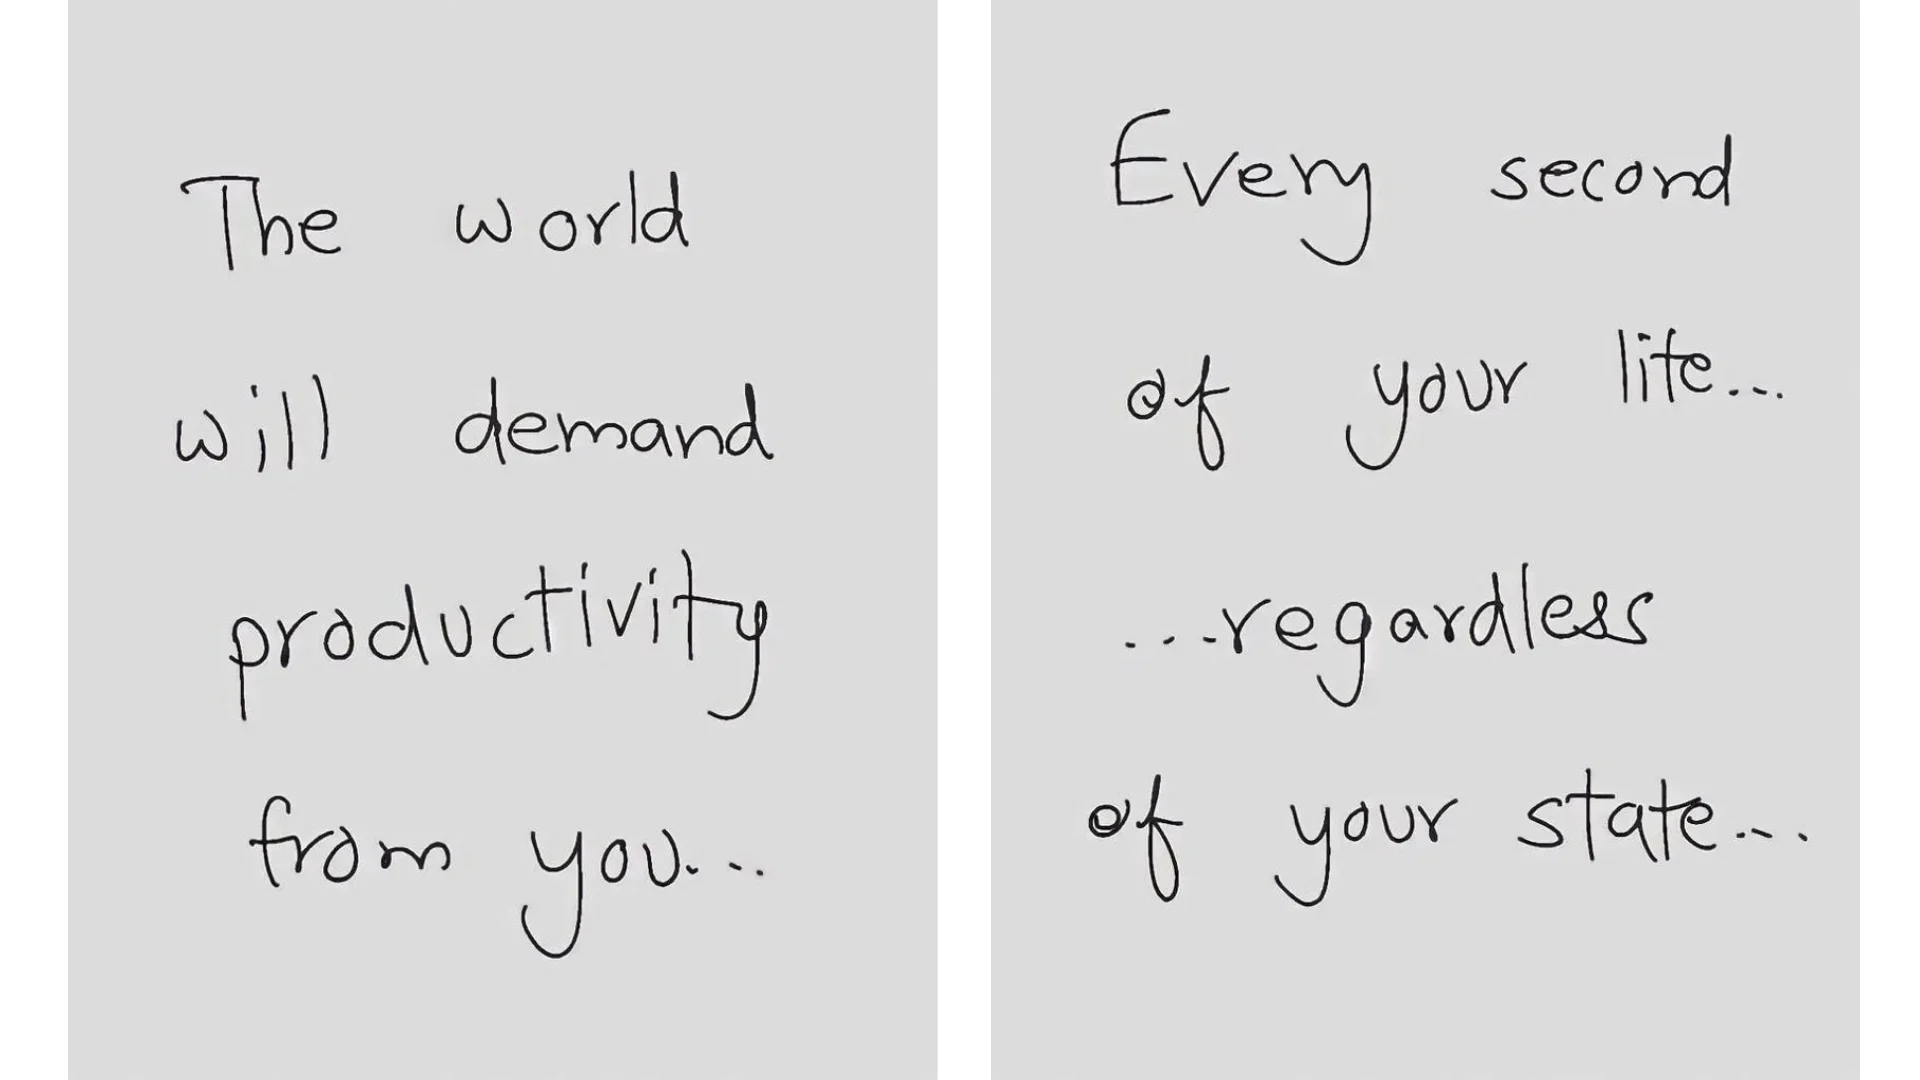 The world
will demand
productivity
from you...
Every second
of your life...
...regardless
of your state...